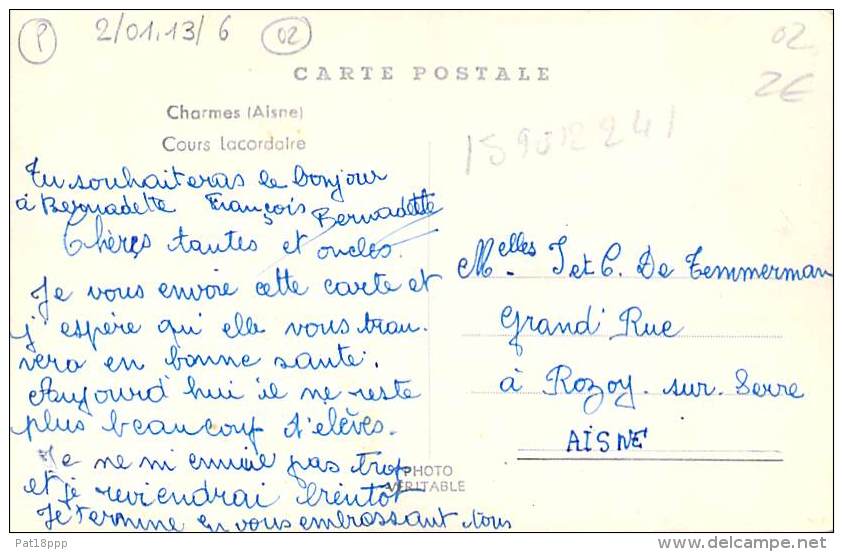 P 2/01.13/6 02
02
2€
CARTE POSTALE
Charmes (Aisne)
Cours Lacordaire
159012241
Tu souhaiteras le bonjour
à Bernadette François Bernadette
Chères tantes et oncles.
Je vous envoie cette carte et
j'espère qui elle vous trou-
vera en bonne santé.
Aujourd'hui il ne reste
plus beaucoup d'elèves.
Je ne m'ennuie pas trop
et je reviendrai bientôt
Je termine en vous embrassant tous
Melles J et C. De Temmerman
Grand' Rue
à Rozoy-sur-Serre
AISNE
PHOTO
VERITABLE
Pat18ppp
www.delcampe.net